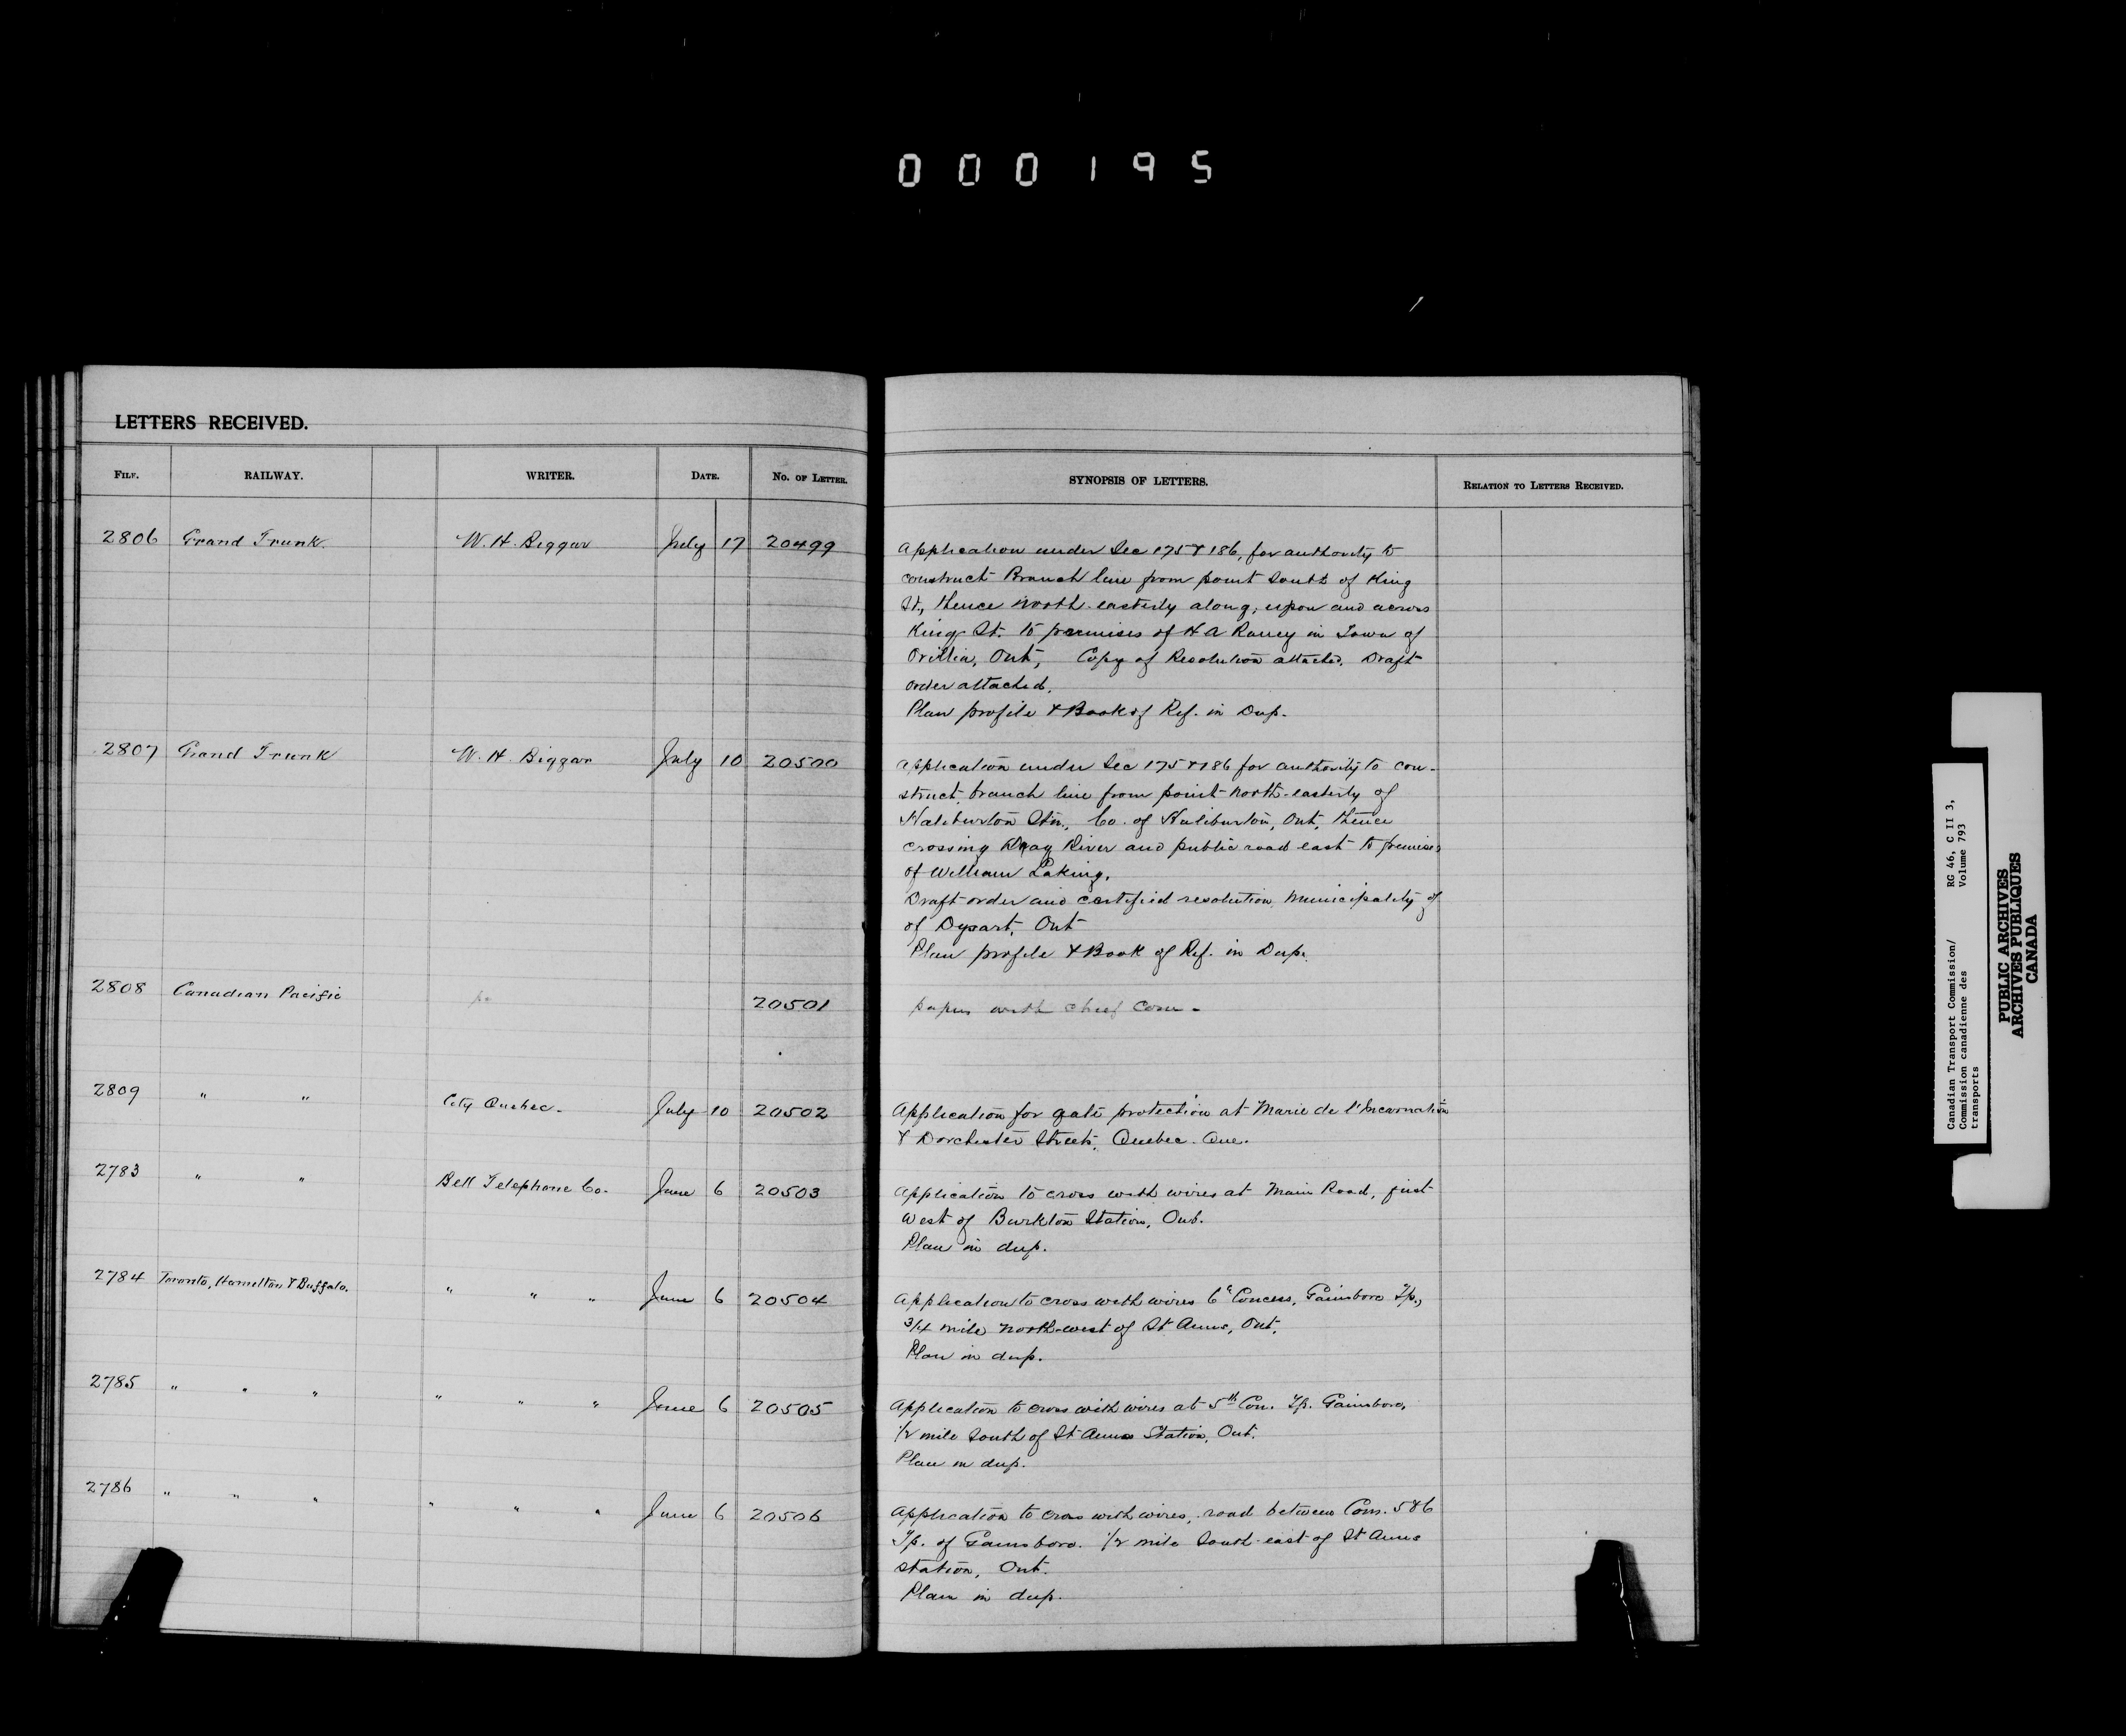 000195
LETTERS RECEIVED.
FILE. RAILWAY. WRITER. DATE. NO. OF LETTER. SYNOPSIS OF LETTERS. RELATION TO LETTERS RECEIVED.
2806 Grand Trunk. W. H. Biggar July 17 20499
Application under Sec 175 & 186, for authority to
construct Branch line from point South of King
St., thence north-easterly along, upon and across
King St. to premises of H A Raney in Town of
Orillia, Ont, Copy of Resolution attached. Draft
order attached.
Plan profile & Book of Ref. in Dup.
2807 Grand Trunk W. H. Biggar July 10 20500
Application under Sec 175 & 186 for authority to con-
struct branch line from point north-easterly of
Haliburton Stn., Co. of Haliburton, Ont, thence
crossing Drag River and public road east to premises
of William Laking.
Draft order and certified resolution Municipality of
of Dysart, Ont
Plan profile & Book of Ref. in Dup.
2808 Canadian Pacific 20501
papers with Chief Com -
2809 " " City Quebec - July 10 20502
Application for gate protection at Marie de l'Incarnation
& Dorchester Streets, Quebec. Que.
2783 " " Bell Telephone Co. June 6 20503
Application to cross with wires at Main Road, just
West of Burkton Station, Ont.
Plan in dup.
2784 Toronto, Hamilton & Buffalo. " " " June 6 20504
Application to cross with wires 6th Concess, Gainsboro Tp.,
3/4 mile north-west of St Anns, Ont.
Plan in dup.
2785 " " " " " " June 6 20505
Application to cross with wires at 5th Con. Tp. Gainsboro,
1/2 mile South of St Anns Station, Ont.
Plan in dup.
2786 " " " " " " June 6 20506
Application to cross with wires, road between Cons. 5 & 6
Tp. of Gainsboro. 1/2 mile South-east of St Anns
station, Ont.
Plan in dup.
Canadian Transport Commission/ RG 46, C II 3,
Commission canadienne des Volume 793
transports
PUBLIC ARCHIVES
ARCHIVES PUBLIQUES
CANADA